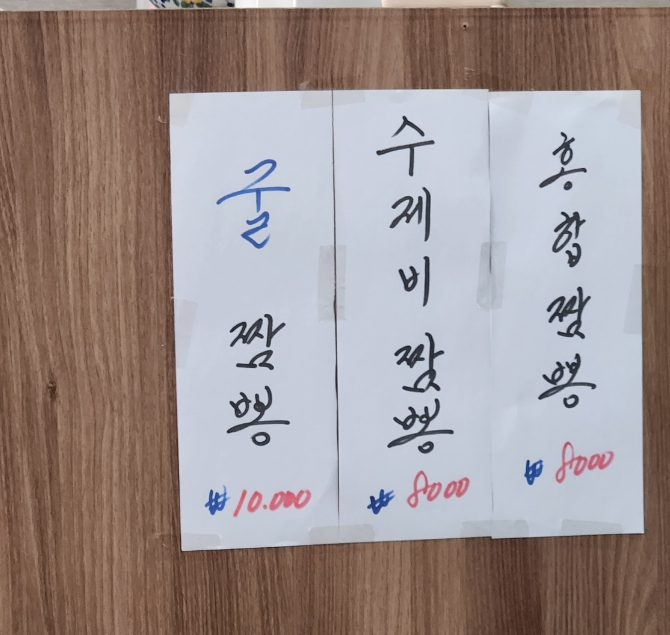 굴 짬뽕
₩10.000
수제비 짬뽕
₩8000
홍합 짬뽕
₩8000